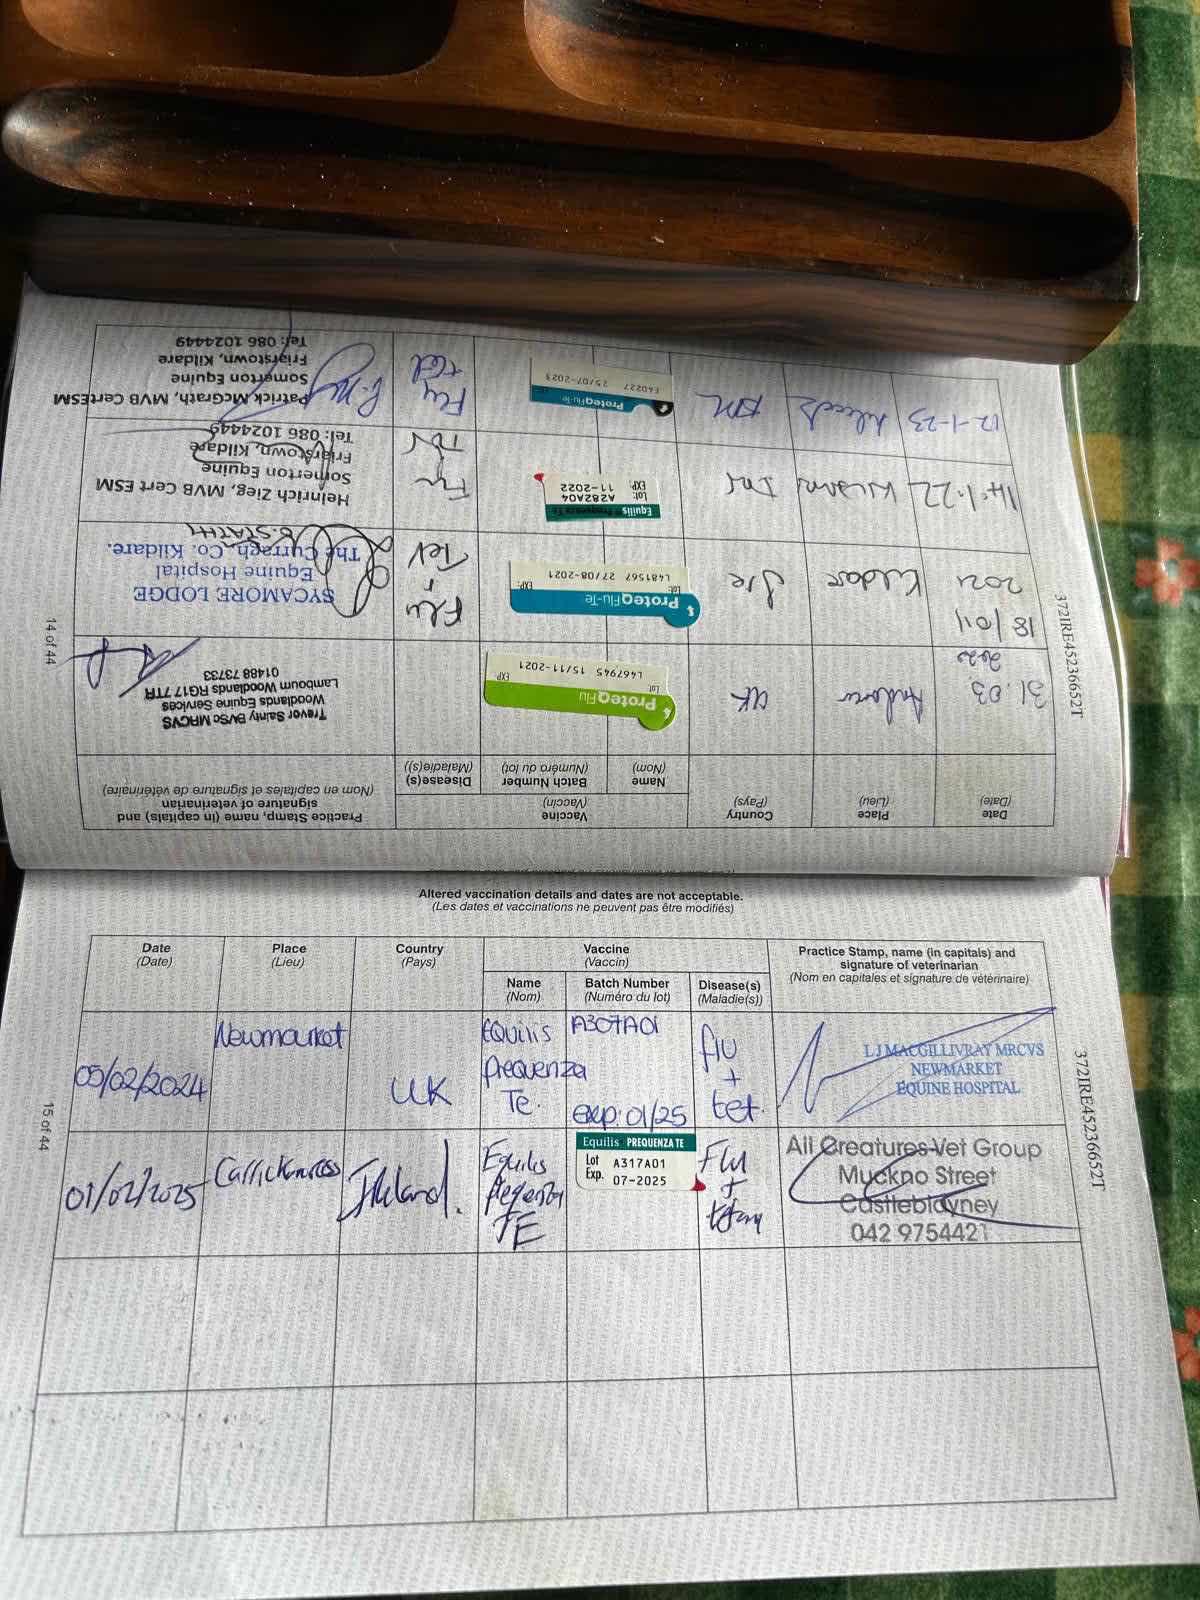 14 of 44
372IRE45236652T
Date
(Date)
Place
(Lieu)
Country
(Pays)
Vaccine
(Vaccin)
Name
(Nom)
Batch Number
(Numéro du lot)
Disease(s)
(Maladie(s))
Practice Stamp, name (in capitals) and
signature of veterinarian
(Nom en capitales et signature de vétérinaire)
31.03
2020
UK
ProteqFlu
Lot
EXP
L467945 15/11-2021
Trevor Sainty BVSc MRCVS
Woodlands Equine Services
Lambourn Woodlands RG17 7TR
01488 73733
18/04
2021
Kildare
Ire
ProteqFlu-Te
Lot:
EXP:
L481567 27/08-2021
Flu
Tet
SYCAMORE LODGE
Equine Hospital
The Curragh, Co. Kildare.
14.1.22
Kildare
Equilis Prequenza Te
Lot: A282A04
EXP: 11-2022
Heinrich Zieg, MVB Cert ESM
Somerton Equine
Friarstown, Kildare
Tel: 086 1024449
12-1-23
ProteqFlu-Te
E40227 25/07-2023
Flu
+tet
Patrick McGrath, MVB CertESM
Somerton Equine
Friarstown, Kildare
Tel: 086 1024449
Altered vaccination details and dates are not acceptable.
(Les dates et vaccinations ne peuvent pas être modifiés)
Date
(Date)
Place
(Lieu)
Country
(Pays)
Vaccine
(Vaccin)
Name
(Nom)
Batch Number
(Numéro du lot)
Disease(s)
(Maladie(s))
Practice Stamp, name (in capitals) and
signature of veterinarian
(Nom en capitales et signature de vétérinaire)
05/02/2024
Newmarket
UK
EQUILIS
prequenza
Te.
A307A01
exp: 01/25
flu
+
tet.
L J MACGILLIVRAY MRCVS
NEWMARKET
EQUINE HOSPITAL
01/02/2025
Carrickmacross
Ireland.
Equilis
Prequenza
TE
Equilis PREQUENZA TE
Lot A317A01
Exp. 07-2025
Flu
+
All Creatures Vet Group
Muckno Street
Castleblayney
042 9754421
15 of 44
372IRE45236652T